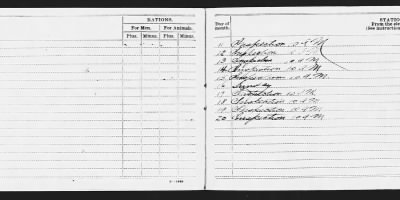 RATIONS.
For Men. For Animals.
Plus. Minus. Plus. Minus.
Day of month.
STATIO
From the ste
(See instruction
11 Inspection 10 A M
12 Inspection
13 Inspection 10 A M
14 Inspection 10 A M
15 Inspection 10 A M
16 Sunday
17 Inspection 10 A M
18 Inspection 10 A M
19 Inspection 10 A M
20 Inspection 10 A M